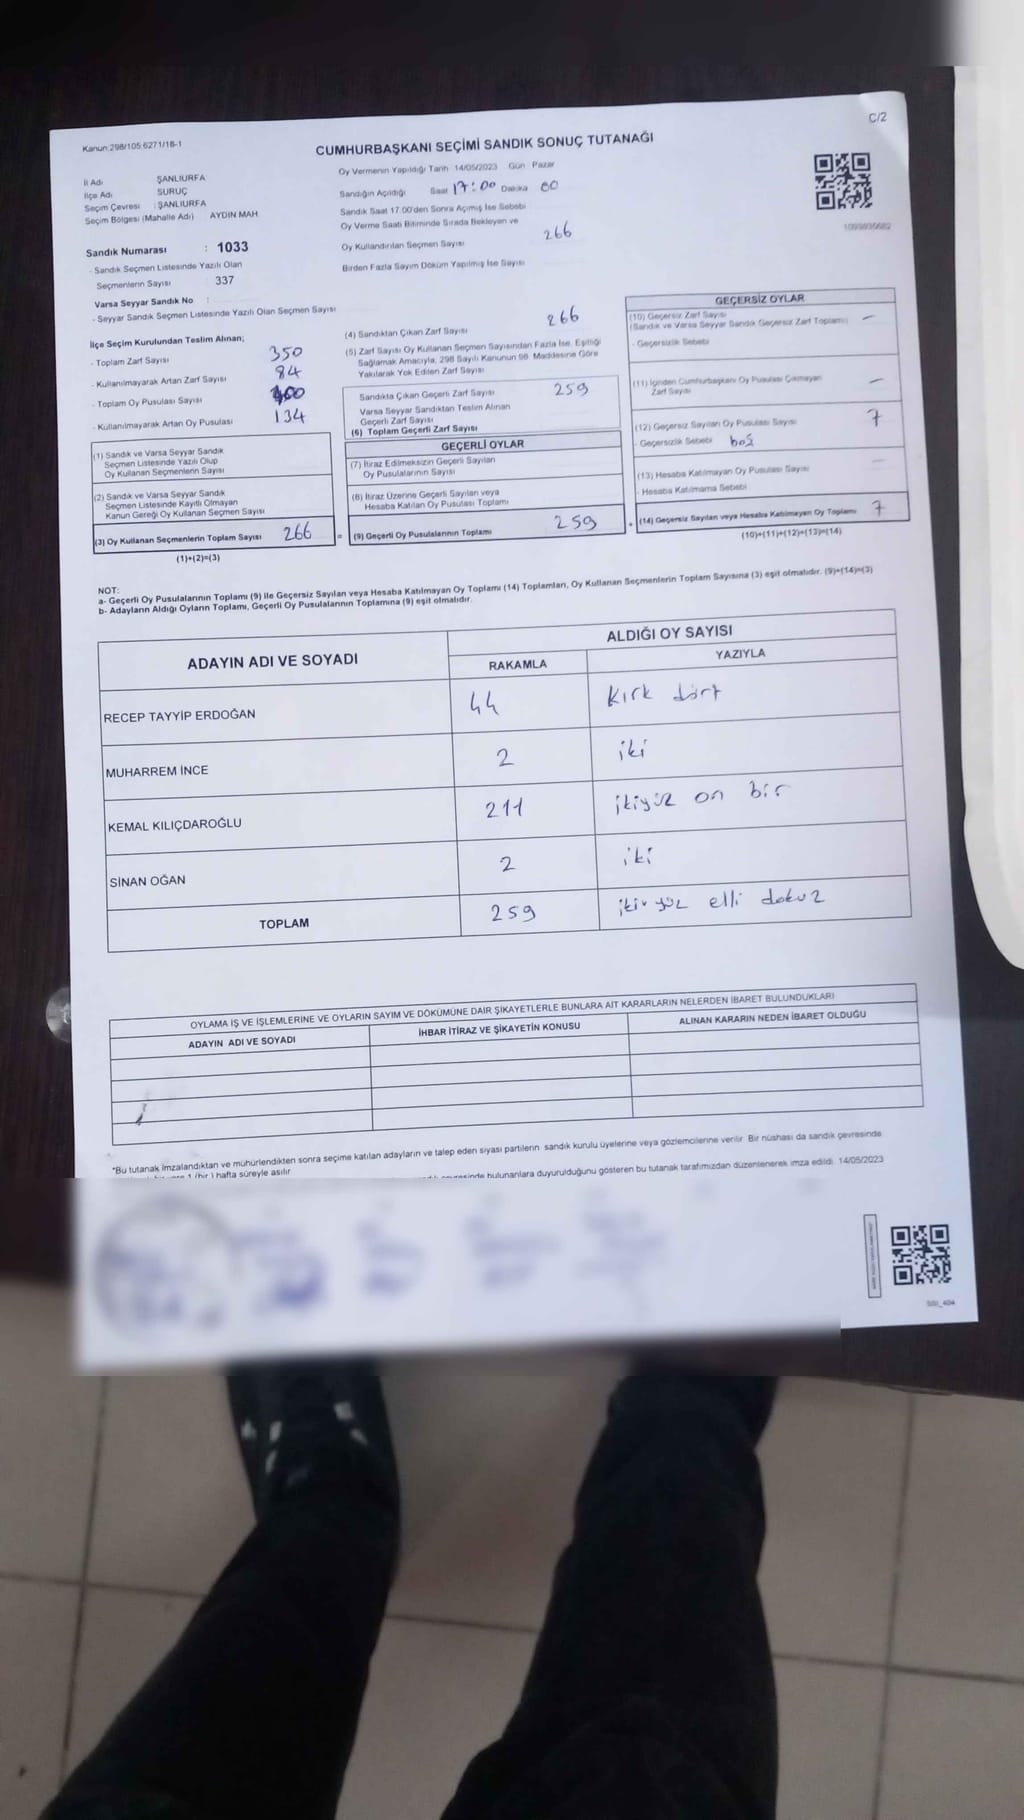 C/2
Kanun:298/105:6271/18-1
CUMHURBAŞKANI SEÇİMİ SANDIK SONUÇ TUTANAĞI
İl Adı ŞANLIURFA
İlçe Adı SURUÇ
Seçim Çevresi : ŞANLIURFA
Seçim Bölgesi (Mahalle Adı) AYDIN MAH.
Sandık Numarası : 1033
- Sandık Seçmen Listesinde Yazılı Olan
Seçmenlerin Sayısı 337
Varsa Seyyar Sandık No :
- Seyyar Sandık Seçmen Listesinde Yazılı Olan Seçmen Sayısı
Oy Vermenin Yapıldığı Tarih 14/05/2023 Gün Pazar
Sandığın Açıldığı Saat 17:00 Dakika 00
Sandık Saat 17.00'den Sonra Açılmış İse Sebebi
Oy Verme Saati Bitiminde Sırada Bekleyen ve
Oy Kullandırılan Seçmen Sayısı 266
Birden Fazla Sayım Döküm Yapılmış İse Sayısı
İlçe Seçim Kurulundan Teslim Alınan;
- Toplam Zarf Sayısı 350
- Kullanılmayarak Artan Zarf Sayısı 84
- Toplam Oy Pusulası Sayısı
- Kullanılmayarak Artan Oy Pusulası 134
(1) Sandık ve Varsa Seyyar Sandık
Seçmen Listesinde Yazılı Olup
Oy Kullanan Seçmenlerin Sayısı
(2) Sandık ve Varsa Seyyar Sandık
Seçmen Listesinde Kayıtlı Olmayan
Kanun Gereği Oy Kullanan Seçmen Sayısı
(3) Oy Kullanan Seçmenlerin Toplam Sayısı 266
(1)+(2)=(3)
(4) Sandıktan Çıkan Zarf Sayısı 266
(5) Zarf Sayısı Oy Kullanan Seçmen Sayısından Fazla İse, Eşitliği
Sağlamak Amacıyla, 298 Sayılı Kanunun 98. Maddesine Göre
Yakılarak Yok Edilen Zarf Sayısı
Sandıkta Çıkan Geçerli Zarf Sayısı 259
Varsa Seyyar Sandıktan Teslim Alınan
Geçerli Zarf Sayısı
(6) Toplam Geçerli Zarf Sayısı
GEÇERLİ OYLAR
(7) İtiraz Edilmeksizin Geçerli Sayılan
Oy Pusulalarının Sayısı
(8) İtiraz Üzerine Geçerli Sayılan veya
Hesaba Katılan Oy Pusulası Toplamı
= (9) Geçerli Oy Pusulalarının Toplamı 259
GEÇERSİZ OYLAR
(10) Geçersiz Zarf Sayısı
(Sandık ve Varsa Seyyar Sandık Geçersiz Zarf Toplamı) -
- Geçersizlik Sebebi
(11) İçinden Cumhurbaşkanı Oy Pusulası Çıkmayan
Zarf Sayısı -
(12) Geçersiz Sayılan Oy Pusulası Sayısı 7
- Geçersizlik Sebebi boş
(13) Hesaba Katılmayan Oy Pusulası Sayısı -
- Hesaba Katılmama Sebebi
+ (14) Geçersiz Sayılan veya Hesaba Katılmayan Oy Toplamı 7
(10)+(11)+(12)+(13)=(14)
NOT:
a- Geçerli Oy Pusulalarının Toplamı (9) ile Geçersiz Sayılan veya Hesaba Katılmayan Oy Toplamı (14) Toplamları, Oy Kullanan Seçmenlerin Toplam Sayısına (3) eşit olmalıdır. (9)+(14)=(3)
b- Adayların Aldığı Oyların Toplamı, Geçerli Oy Pusulalarının Toplamına (9) eşit olmalıdır.
ADAYIN ADI VE SOYADI
ALDIĞI OY SAYISI
RAKAMLA YAZIYLA
RECEP TAYYİP ERDOĞAN 44 Kırk dört
MUHARREM İNCE 2 iki
KEMAL KILIÇDAROĞLU 211 ikiyüz on bir
SİNAN OĞAN 2 iki
TOPLAM 259 iki yüz elli dokuz
OYLAMA İŞ VE İŞLEMLERİNE VE OYLARIN SAYIM VE DÖKÜMÜNE DAİR ŞİKAYETLERLE BUNLARA AİT KARARLARIN NELERDEN İBARET BULUNDUKLARI
ADAYIN ADI VE SOYADI İHBAR İTİRAZ VE ŞİKAYETİN KONUSU ALINAN KARARIN NEDEN İBARET OLDUĞU
*Bu tutanak imzalandıktan ve mühürlendikten sonra seçime katılan adayların ve talep eden siyası partilerin sandık kurulu üyelerine veya gözlemcilerine verilir. Bir nüshası da sandık çevresinde
1 (bir) hafta süreyle asılır.
bulunanlara duyurulduğunu gösteren bu tutanak tarafımızdan düzenlenerek imza edildi. 14/05/2023